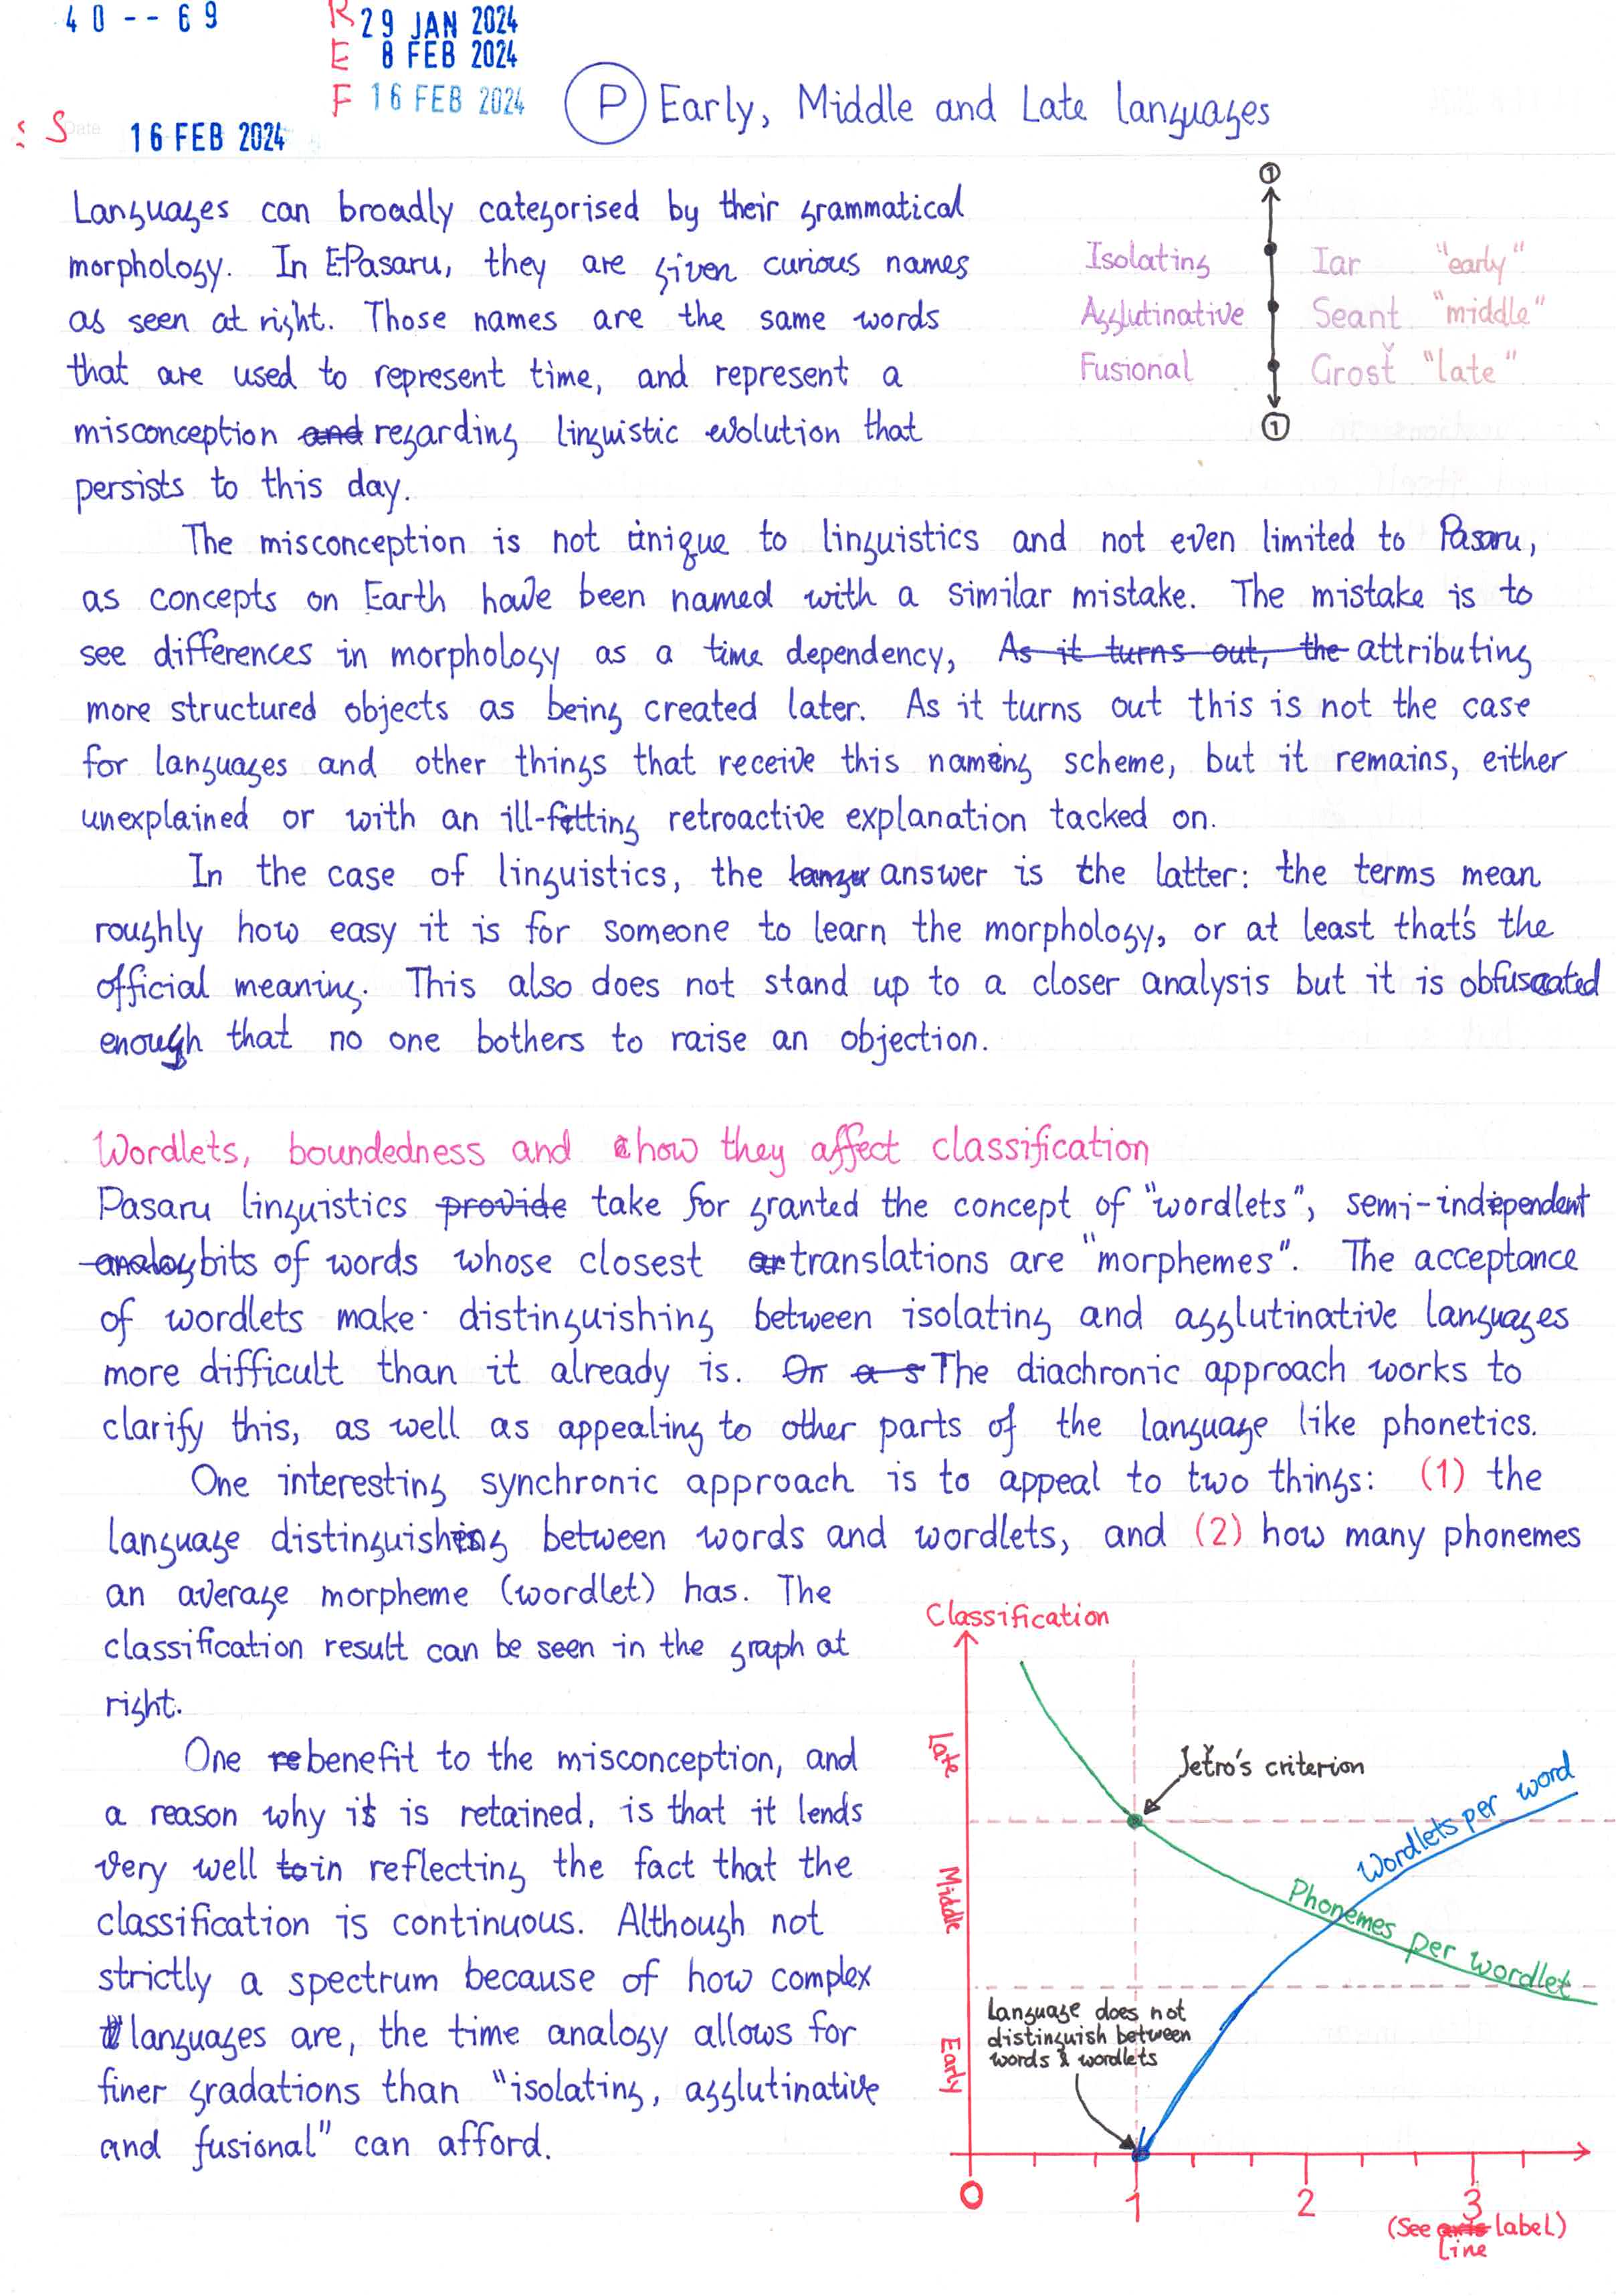 40--69
R 29 JAN 2024
E 8 FEB 2024
F 16 FEB 2024
: S Date 16 FEB 2024
P Early, Middle and Late languages
Languages can broadly categorised by their grammatical
morphology. In EPasaru, they are given curious names
as seen at right. Those names are the same words
that are used to represent time, and represent a
misconception and regarding linguistic evolution that
persists to this day.
1
Isolating Iar "early"
Agglutinative Seant "middle"
Fusional Grosť "late"
1
The misconception is not unique to linguistics and not even limited to Pasaru,
as concepts on Earth have been named with a similar mistake. The mistake is to
see differences in morphology as a time dependency, As it turns out, the attributing
more structured objects as being created later. As it turns out this is not the case
for languages and other things that receive this naming scheme, but it remains, either
unexplained or with an ill-fitting retroactive explanation tacked on.
In the case of linguistics, the langu answer is the latter: the terms mean
roughly how easy it is for someone to learn the morphology, or at least that's the
official meaning. This also does not stand up to a closer analysis but it is obfuscated
enough that no one bothers to raise an objection.
Wordlets, boundedness and how they affect classification
Pasaru linguistics provide take for granted the concept of "wordlets", semi-independent
analog bits of words whose closest translations are "morphemes". The acceptance
of wordlets make distinguishing between isolating and agglutinative languages
more difficult than it already is. On a s The diachronic approach works to
clarify this, as well as appealing to other parts of the language like phonetics.
One interesting synchronic approach is to appeal to two things: (1) the
language distinguishing between words and wordlets, and (2) how many phonemes
an average morpheme (wordlet) has. The
classification result can be seen in the graph at
right.
One re benefit to the misconception, and
a reason why it is retained, is that it lends
very well to in reflecting the fact that the
classification is continuous. Although not
strictly a spectrum because of how complex
languages are, the time analogy allows for
finer gradations than "isolating, agglutinative
and fusional" can afford.
Classification
Late
Middle
Early
Jeťro's criterion
Wordlets per word
Phonemes per wordlet
Language does not
distinguish between
words & wordlets
0 1 2 3
(See axis label)
line